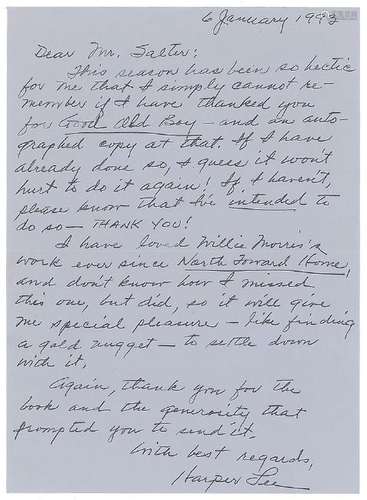 6 January 1993
Dear Mr. Salter:
This season has been so hectic
for me that I simply cannot re-
member if I have thanked you
for Good Old Boy — and an auto-
graphed copy at that. If I have
already done so, I guess it won't
hurt to do it again! If I haven't,
please know that I've intended to
do so — THANK YOU!
I have loved Willie Morris's
work ever since North Toward Home,
and don't know how I missed
this one, but did, so it will give
me special pleasure — like finding
a gold nugget — to settle down
with it.
Again, thank you for the
book and the generosity that
prompted you to send it.
With best regards,
Harper Lee